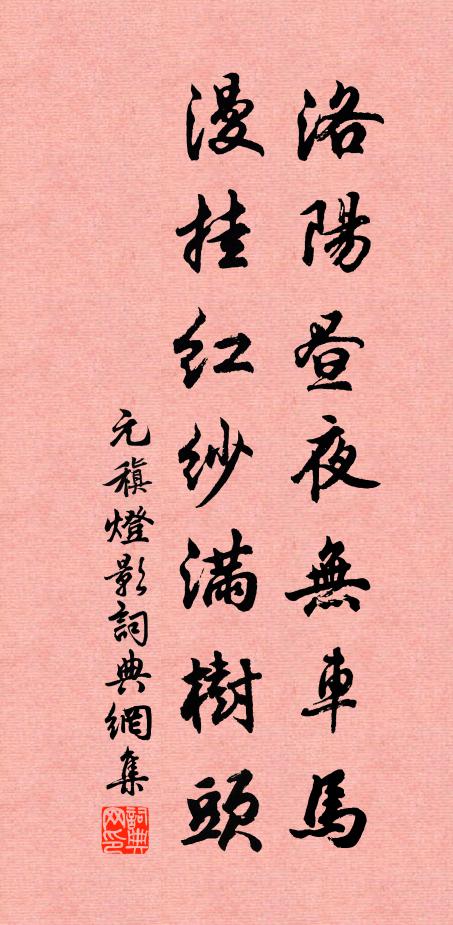 洛陽昼夜無車馬
漫挂紅紗滿樹頭
元稹燈影詞典網集
詞典
网印